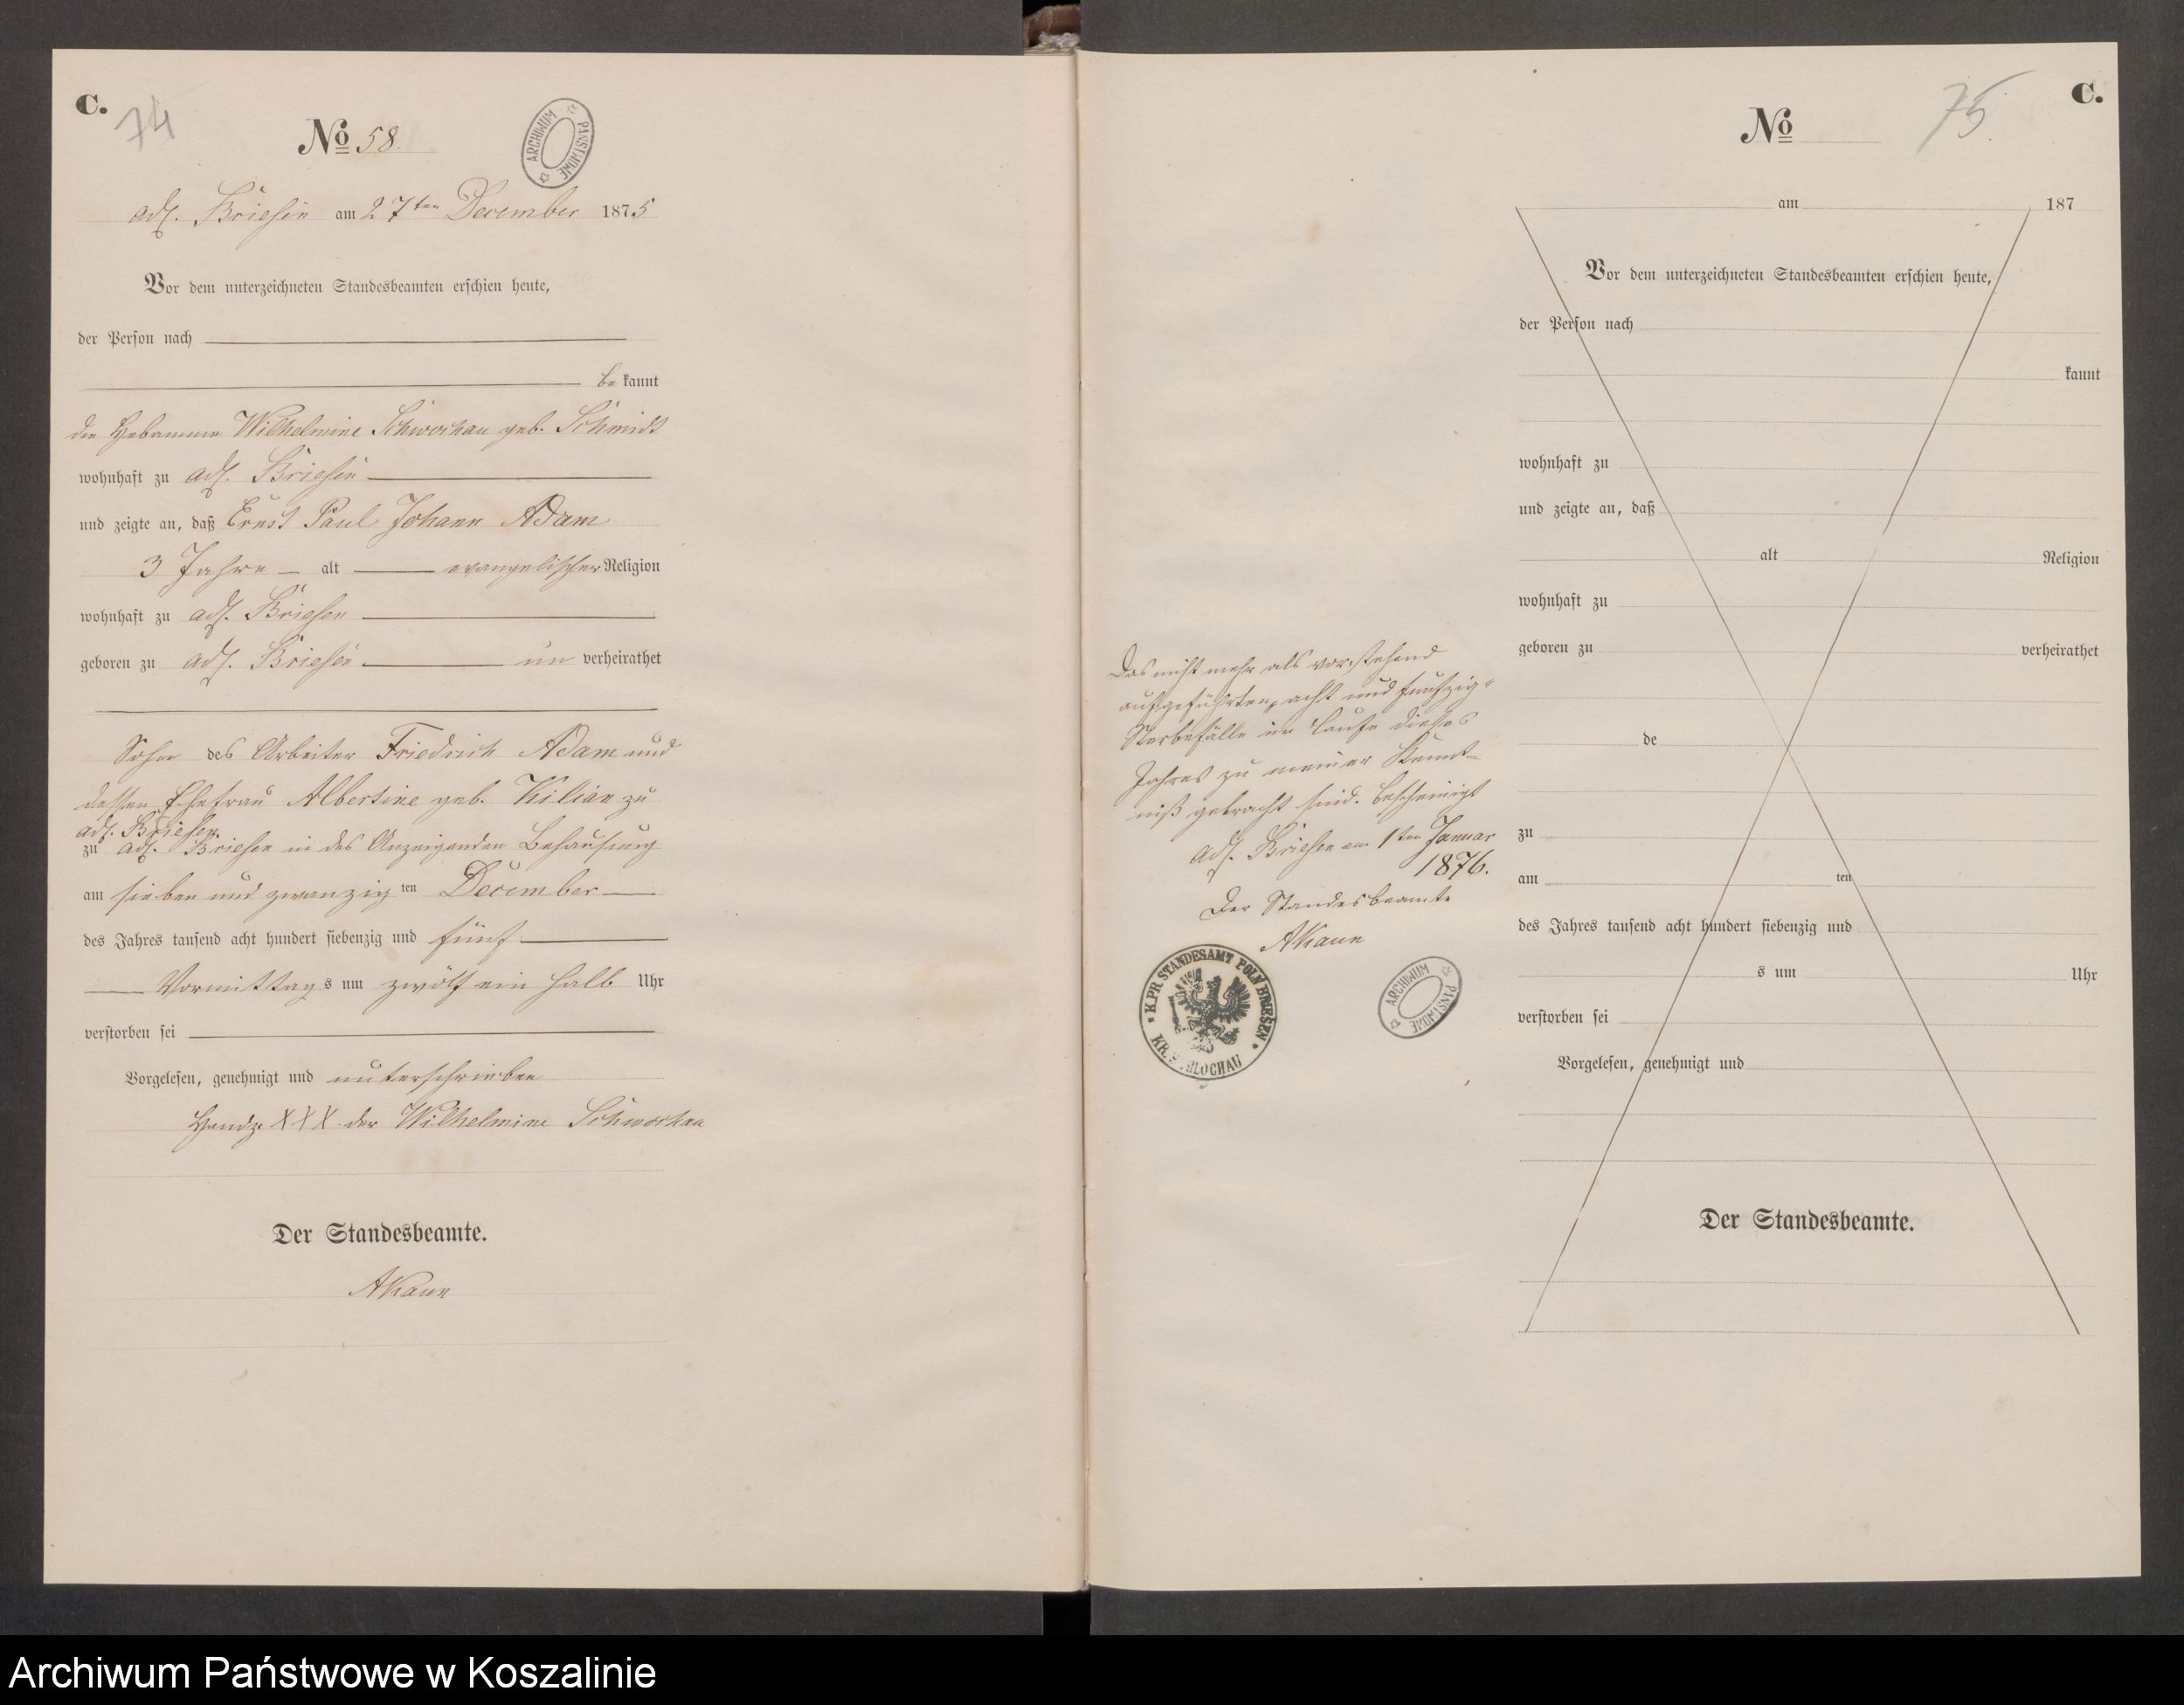 C.
74
No 58.
adl. Briesen am 27ten December 1875
Vor dem unterzeichneten Standesbeamten erschien heute,
der Person nach
bekannt
die Hebamme Wilhelmine Schwochau geb. Schmidt
wohnhaft zu adl. Briesen
und zeigte an, daß Ernst Paul Johann Adam
3 Jahre alt evangelischer Religion
wohnhaft zu adl. Briesen
geboren zu adl. Briesen unverheirathet
Sohn des Arbeiter Friedrich Adam und
dessen Ehefrau Albertine geb. Kilian zu
adl. Briesen
zu adl. Briesen in des Anzeigenden Behausung
am sieben und zwanzigten December
des Jahres tausend acht hundert siebenzig und fünf
Vormittags um zwölf ein halb Uhr
verstorben sei
Vorgelesen, genehmigt und unterschrieben
Handz. XXX der Wilhelmine Schwochau
Der Standesbeamte.
AKaun
ARCHIWUM PAŃSTWOWE
C.
75.
No
am 187
Vor dem unterzeichneten Standesbeamten erschien heute,
der Person nach
kannt
wohnhaft zu
und zeigte an, daß
alt Religion
wohnhaft zu
geboren zu verheirathet
de
zu
am ten
des Jahres tausend acht hundert siebenzig und
s um Uhr
verstorben sei
Vorgelesen, genehmigt und
Der Standesbeamte.
Das nicht mehr als vorstehend
aufgeführten acht und fünfzig
Sterbefälle im Laufe dieses
Jahres zu meiner Kennt-
niß gebracht sind. bescheinigt
adl. Briesen am 1ten Januar
1876.
Der Standesbeamte
AKaun
K.PR.STANDESAMT POLN BRIESEN
KR. SCHLOCHAU
ARCHIWUM PAŃSTWOWE
Archiwum Państwowe w Koszalinie